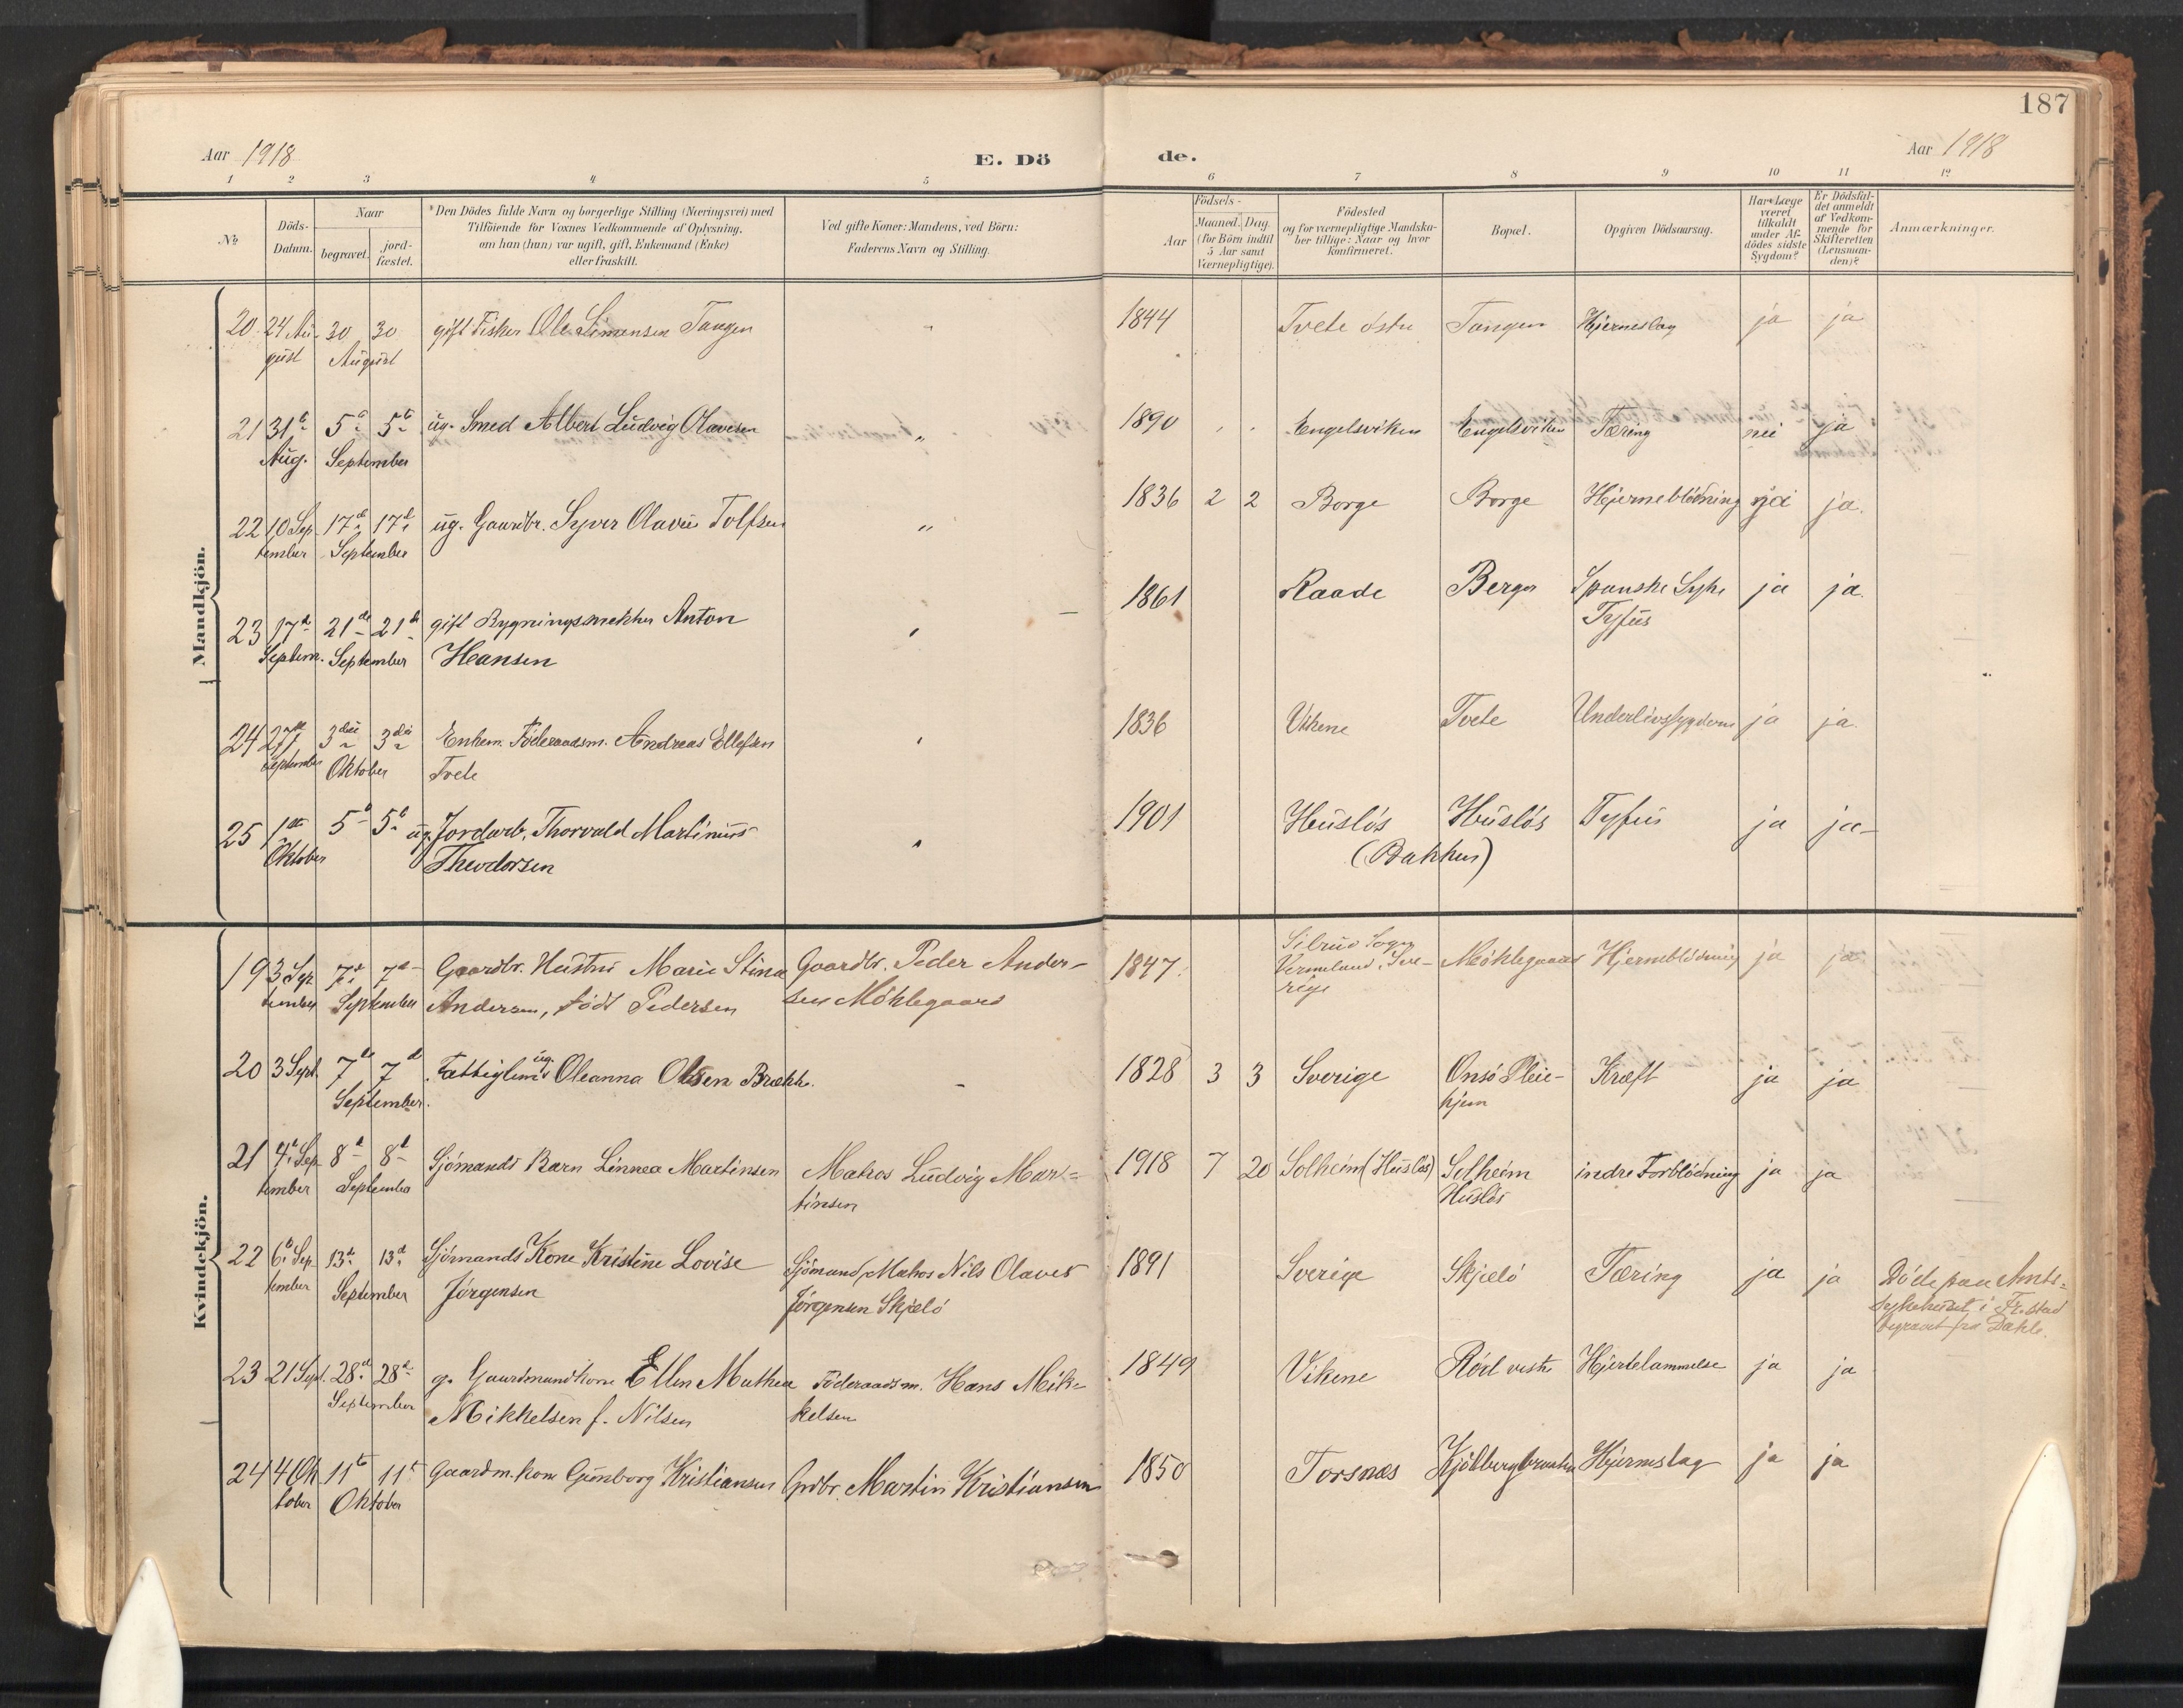 187
Aar 1918
E. Dö
de.
Aar 1918
1 2 3 4 5 6 7 8 9 10 11 12
No
Döds-
Datum.
Naar
begravet.
jord-
fæstet.
*Den Dödes fulde Navn og borgerlige Stilling (Næringsvei) med
Tilföiende for Voxnes Vedkommende af Oplysning,
om han (hun) var ugift, gift, Enkemand (Enke)
eller fraskilt.
Ved gifte Koner: Mandens, ved Börn:
Faderens Navn og Stilling.
Födsels-
Aar
Maaned. Dag.
(for Börn indtil
5 Aar samt
Værnepligtige).
Födested
og for værnepligtige Mandska-
ber tillige: Naar og hvor
konfirmeret.
Bopæl.
Opgiven Dödsaarsag.
Har Læge
været
tilkaldt
under Af-
dödes sidste
Sygdom?
Er Dödsfal-
det anmeldt
af Vedkom-
mende for
Skifteretten
(Lensman-
den)?
Anmærkninger.
Mandkjön.
20 24 Au- 30 30 gift Fisker Ole Simensen Tangen " 1844 Tvete östre Tangen Hjerneslag ja ja
gust August
21 31te 5te 5te ug. Smed Albert Ludvig Olavesen " 1890 Engelsviken Engelsviken Tæring nei ja
Aug. September
22 10 Sep 17de 17de ug. Gaardbr. Syver Olavus Tolfsen " 1836 2 2 Borge Borge Hjerneblödning ja.
tember September
23 17de 21de 21de gift Bygningssnekker Anton " 1861 Raade Berger Spanske Syke ja ja.
Septem. September Hansen Tyfus
24 27de 3die 3die Enkem. Föderaadsm. Andreas Ellefsen " 1836 Vikene Tvete Underlivssygdom ja ja.
September Oktober Tvete
25 1ste 5te 5te ug. Jordarb. Thorvald Martinius " 1901 Husløs Husløs Tyfus ja ja
Oktober Theodorsen (Bakken)
Kvindekjön.
19 3 Sep 7de 7de Gaardbr. Hustru Marie Stina Gaardbr. Peder Ander- 1847 Sogn Møklegaard Hjerneblödning ja ja
tember September Andersen, født Pedersen sen Møklegaard Vermeland, Sve-
rige
20 3 Sept. 7de 7de Fattiglem ug. Oleanna Olsen Brekke. - 1828 3 3 Sverige Onsö Pleie- Kræft ja ja
September. hjem
21 4de Sep 8de 8de Sjömands Barn Linnea Martinsen Matros Ludvig Mar- 1918 7 20 Solheim (Husløs) Solheim indre Forblödning ja ja
tember September tinsen Husløs
22 6te Sep 13de 13de Sjömands Kone Kristine Lovise Sjömand, Matros Nils Olaves 1891 Sverige Skjælø Tæring ja ja Døde paa Amts-
tember September Jørgensen Jørgensen Skjælø sykehuset i Fr.stad
begravet fra Dahle.
23 21 Sept. 28de 28de g. Gaardmandkone Ellen Mathea Föderaadsm. Hans Mik- 1849 Vikene Röd vestre Hjertelammelse ja ja
September Mikkelsen f. Nilsen kelsen
24 4 Ok 11te 11te Gaardm. kone Gunborg Kristiansen Grdbr. Martin Kristiansen 1850 Torsnæs Kjølbergbraaten Hjerneslag ja ja
tober Oktober